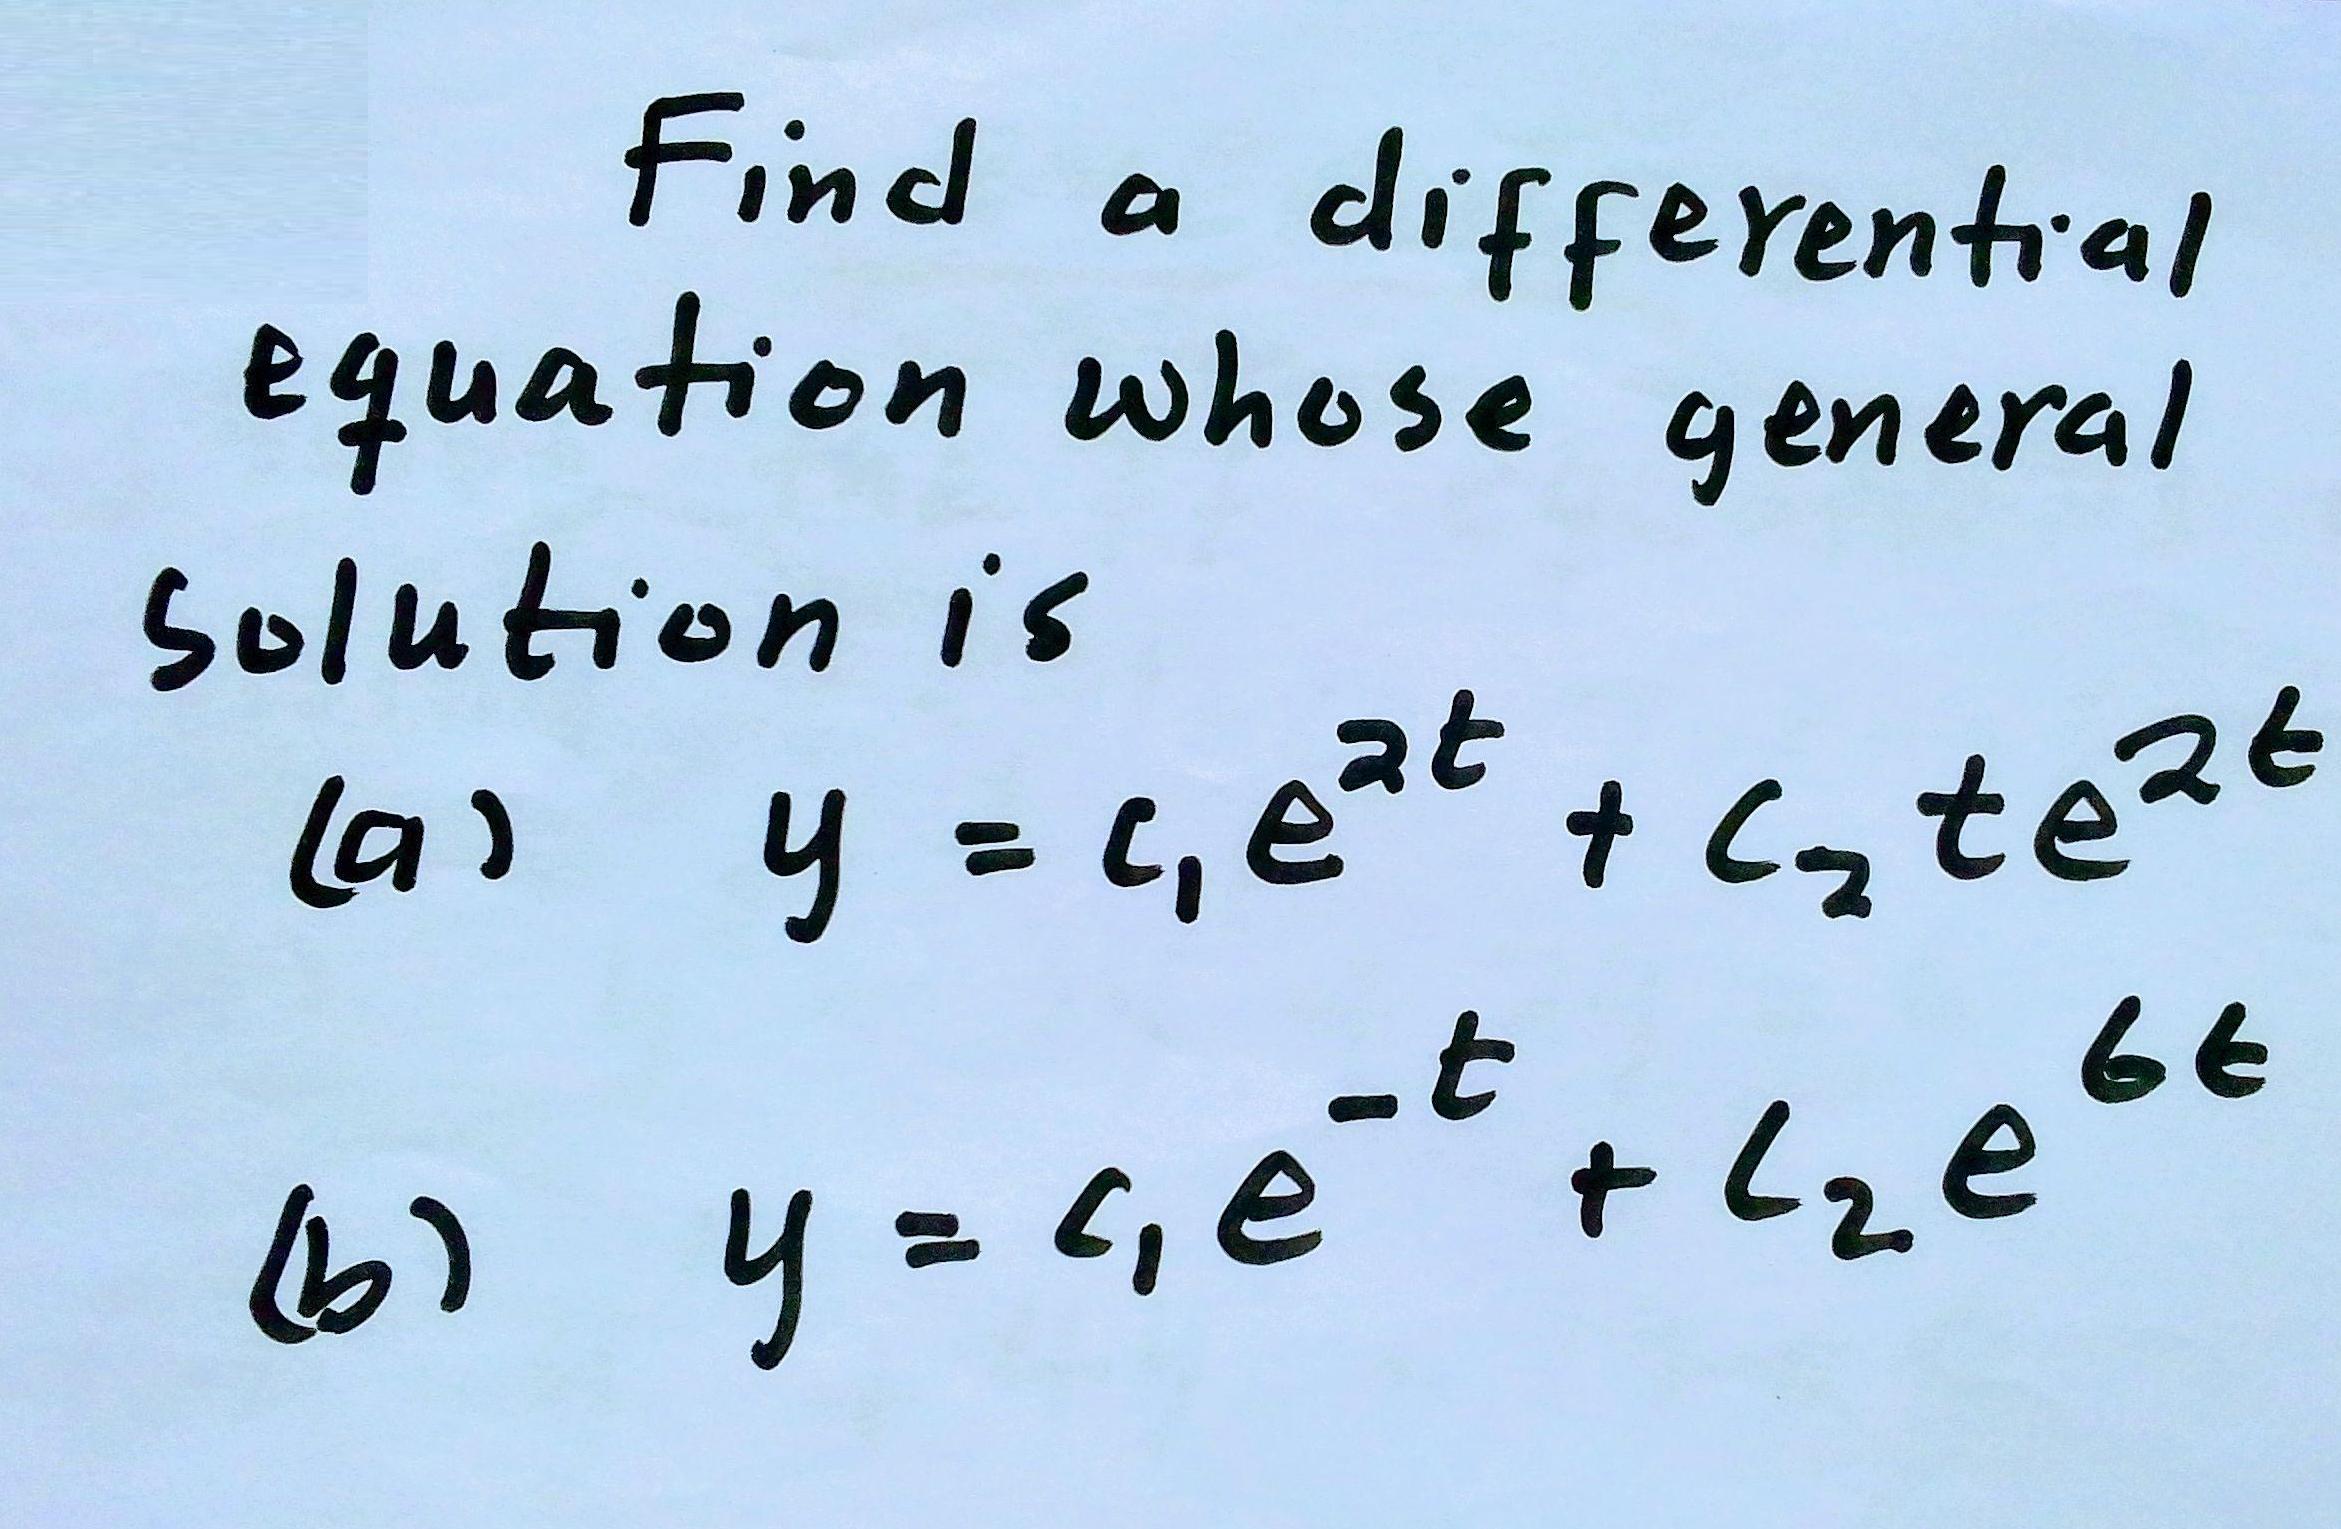 Find a differential
equation whose general
solution is
(a) y = c₁e²ᵗ + c₂te²ᵗ
(b) y = c₁e⁻ᵗ + c₂e⁶ᵗ